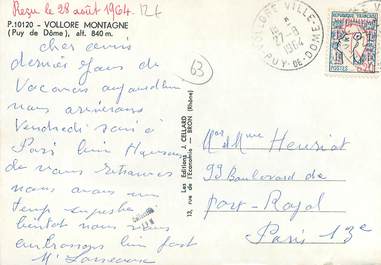 Reçu le 28 août 1964. 12 f
P.10120 - VOLLORE MONTAGNE
(Puy de Dôme), alt. 840 m.
63
VOLLORE VILLE
1964
PUY-DE-DOME
REPUBLIQUE FRANÇAISE
POSTES
0,20
cher amis
dernier jour de
Vacances aujourd'hui
nous arriverons
Vendredi soir à
Paris bien heureux
de vous retrouver
nous avons un
temp superbe
bientot nous vous
embrassons bien fort
13, rue Les Editions J. CELLARD
de l'Economie - BRON (Rhône)
Mr et Mme Henriot
99 Boulevard de
Port-Royal
Paris 13e